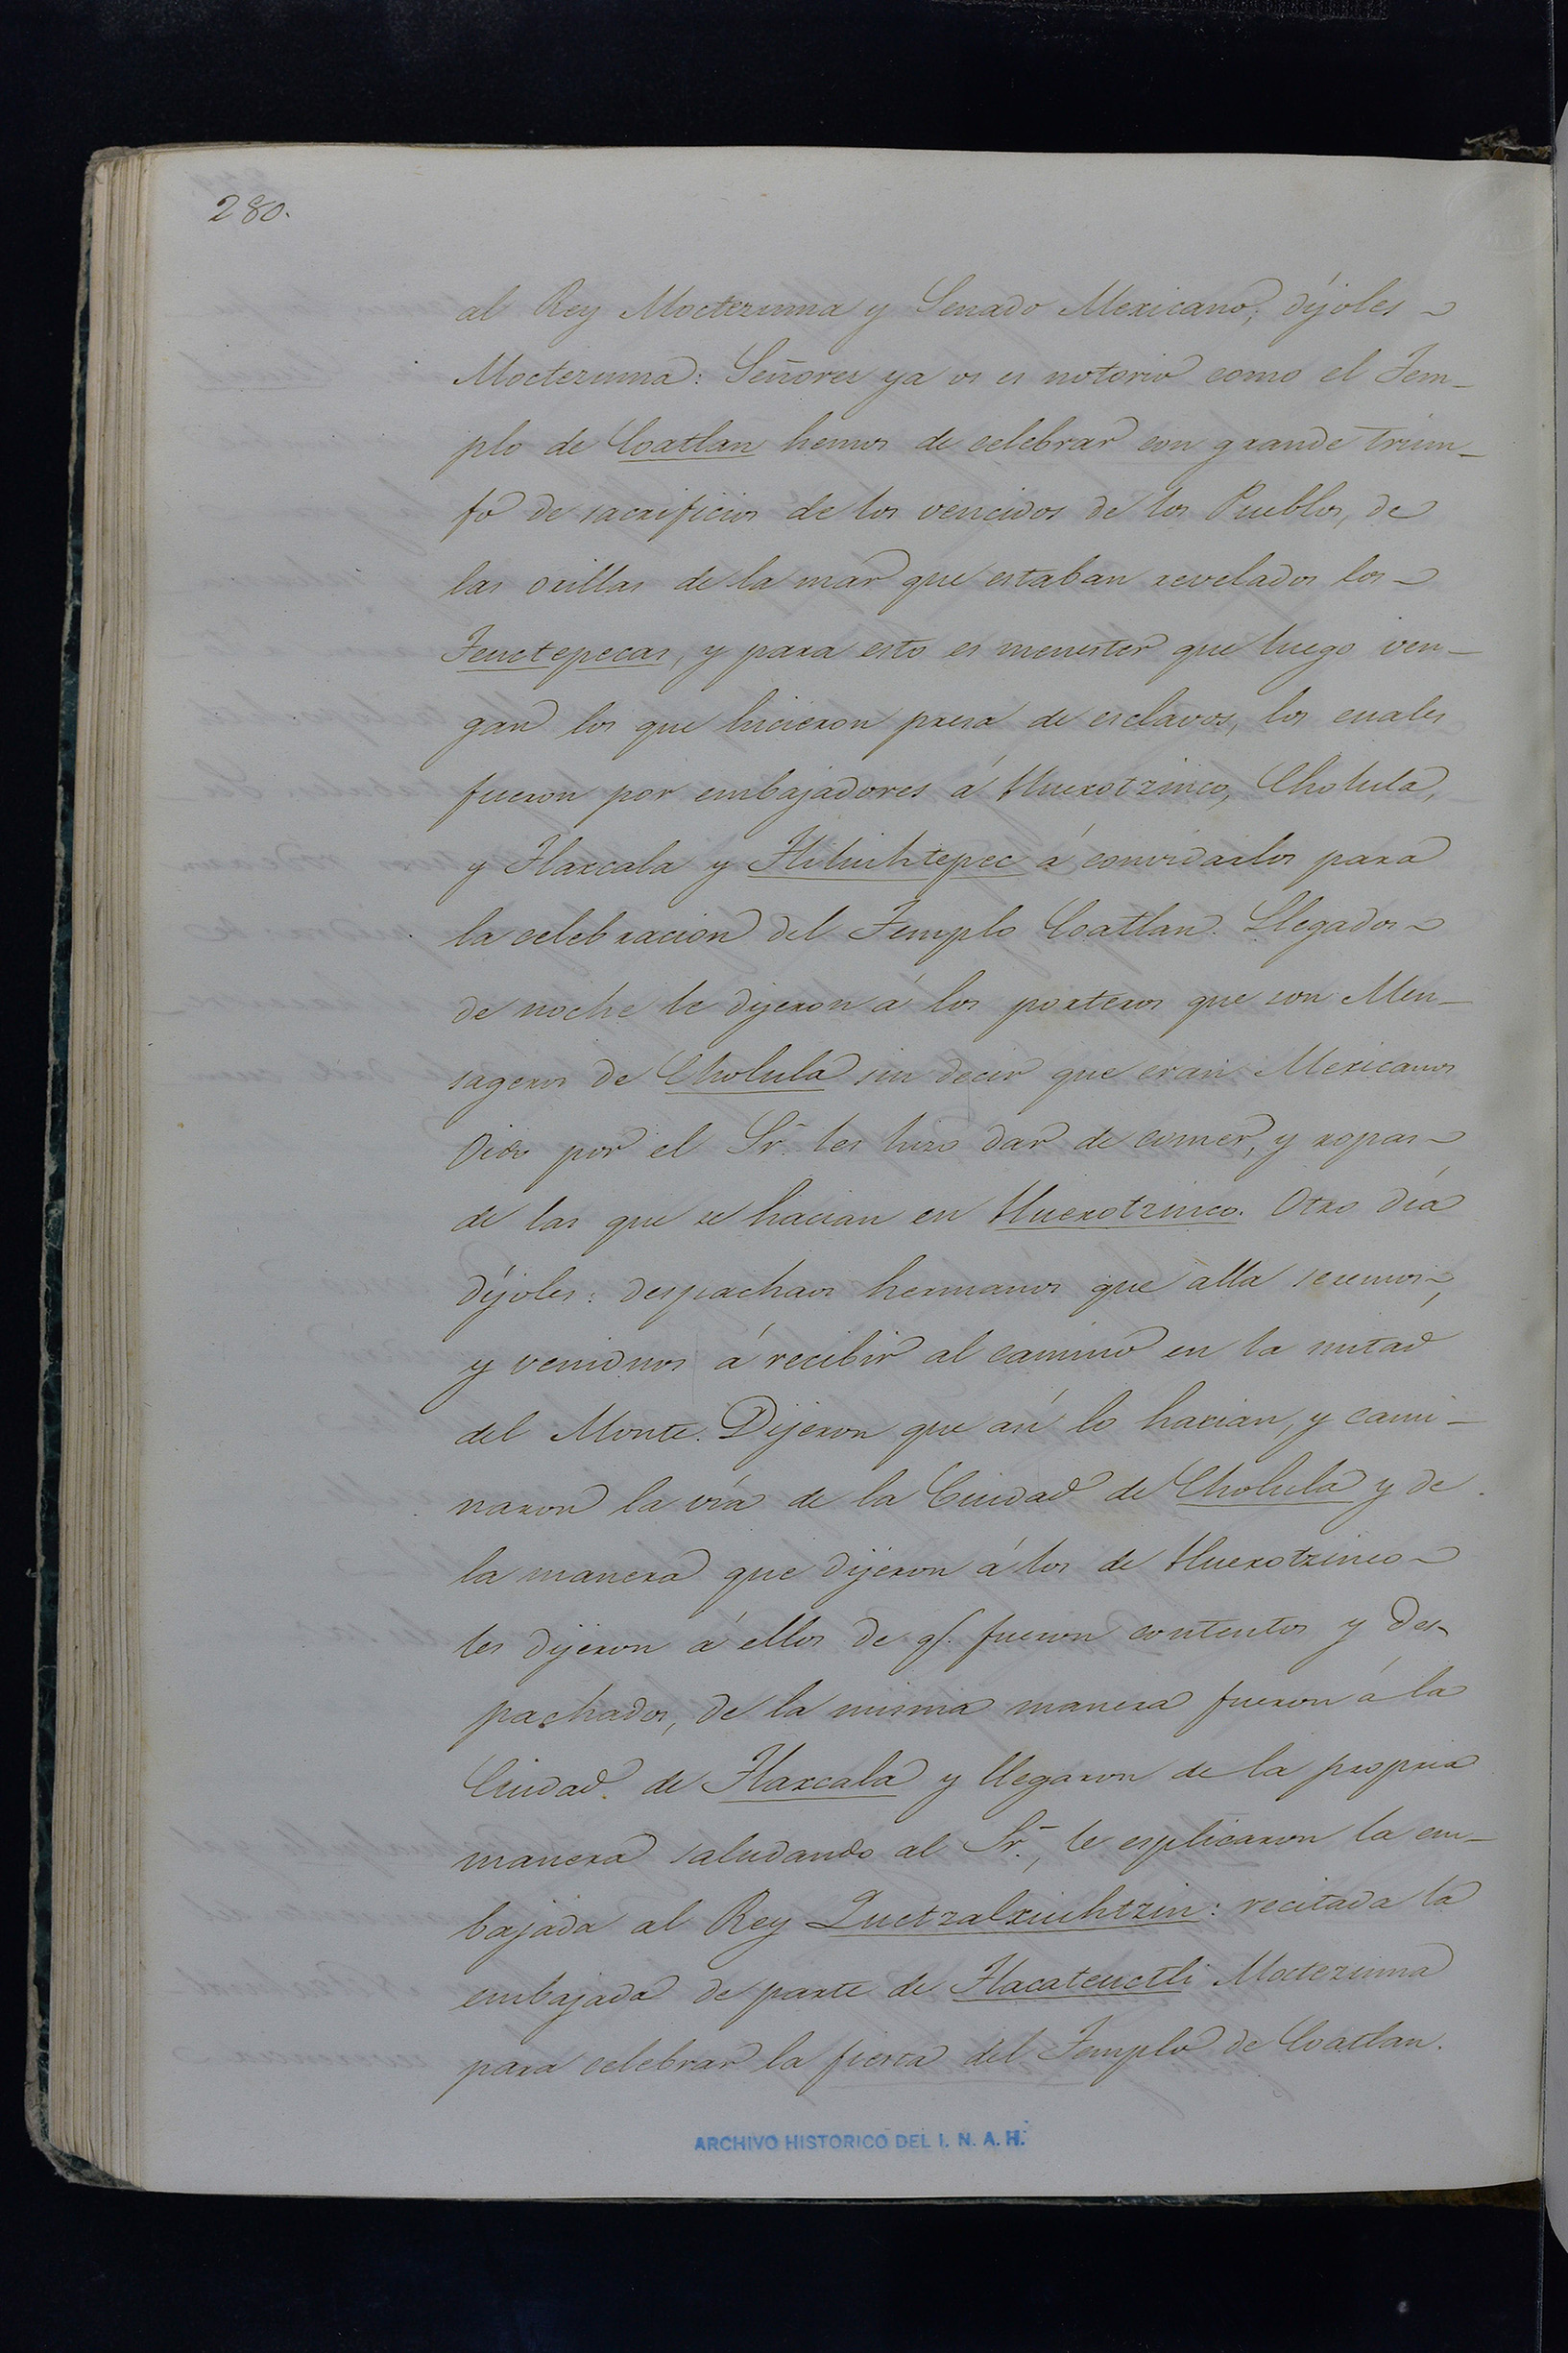 280.
al Rey Moctezuma y Senado Mexicano; díjoles
Moctezuma: Señores ya os es notorio como el Tem-
plo de Coatlan hemos de celebrar con grande trium-
fo de sacrificios de los vencidos de los Pueblos, de
las orillas de la mar que estaban revelados los
Teuctepecas, y para esto es menester que luego ven-
gan los que hicieron presa de esclavos, los cuales
fueron por embajadores á Huexotzinco, Cholula,
y Tlaxcala y Tliliuhtepec á convidarlos para
la celebracion del Templo Coatlan. Llegados
de noche le dijeron á los porteros que son Men-
sageros de Cholula sin decir que eran Mexicanos
Oido por el Sr. les hizo dar de comer, y ropas
de las que se hacian en Huexotzinco. Otro día
díjoles: despachaos hermanos que alla seremos,
y venidnos á recibir al camino en la mitad
del Monte. Dijeron que así lo harian, y cami-
naron la vía de la Ciudad de Cholula y de
la manera que dijeron á los de Huexotzinco
les dijeron á ellos de q. fueron contentos y des-
pachados, de la misma manera fueron á la
Ciudad de Tlaxcala y llegaron de la propria
manera saludando al Sr., le esplicaron la em-
bajada al Rey Quetzalxiuhtzin: recitada la
embajada de parte de Tlacateuctli Moctezuma
para celebrar la fiesta del Templo de Coatlan.
ARCHIVO HISTORICO DEL I. N. A. H.